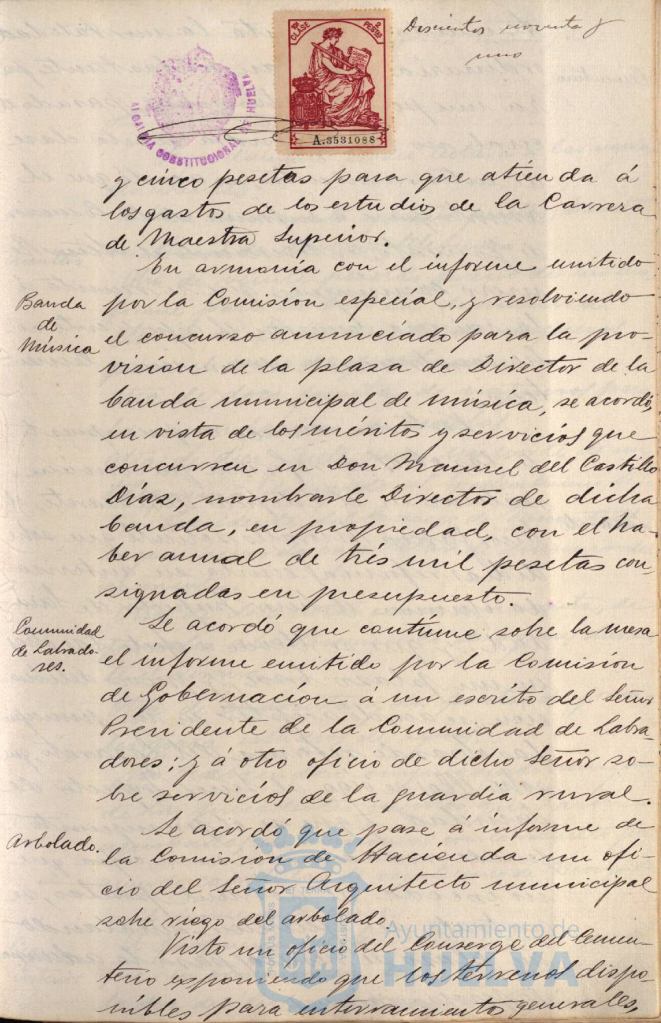 Doscientos noventa y
uno
CLASE
PESETAS
A.3531088
ALCALDIA CONSTITUCIONAL DE HUELVA
y cinco pesetas para que atienda á
los gastos de los estudios de la Carrera
de Maestra Superior.
Banda
de
Música
En armonía con el informe emitido
por la Comisión especial, y resolviendo
el concurso anunciado para la pro-
visión de la plaza de Director de la
banda municipal de música, se acordó,
en vista de los méritos y servicios que
concurren en Don Manuel del Castillo
Díaz, nombrarle Director de dicha
banda, en propiedad, con el ha-
ber anual de trés mil pesetas con-
signadas en presupuesto.
Comunidad
de Labrado-
res.
Se acordó que continúe sobre la mesa
el informe emitido por la Comisión
de Gobernación á un escrito del Señor
Presidente de la Comunidad de Labra-
dores; y á otro oficio de dicho Señor so-
bre servicios de la guardia rural.
Arbolado.
Se acordó que pase á informe de
la Comisión de Hacienda un ofi-
cio del Señor Arquitecto municipal
sobre riego del arbolado
Visto un oficio del Conserge del Cemen-
terio exponiendo que los terrenos dispo-
nibles para enterramientos generales,
Ayuntamiento de
HUELVA